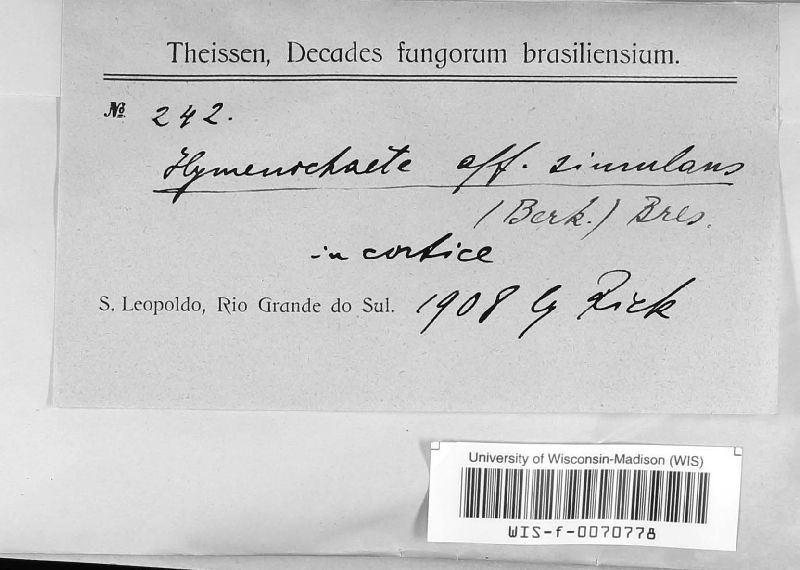 Theissen, Decades fungorum brasiliensium.
No 242.
Hymenochaete aff. simulans
(Berk.) Bres.
in cortice
S. Leopoldo, Rio Grande do Sul. 1908 lg Rick
University of Wisconsin-Madison (WIS)
WIS-f-0070778